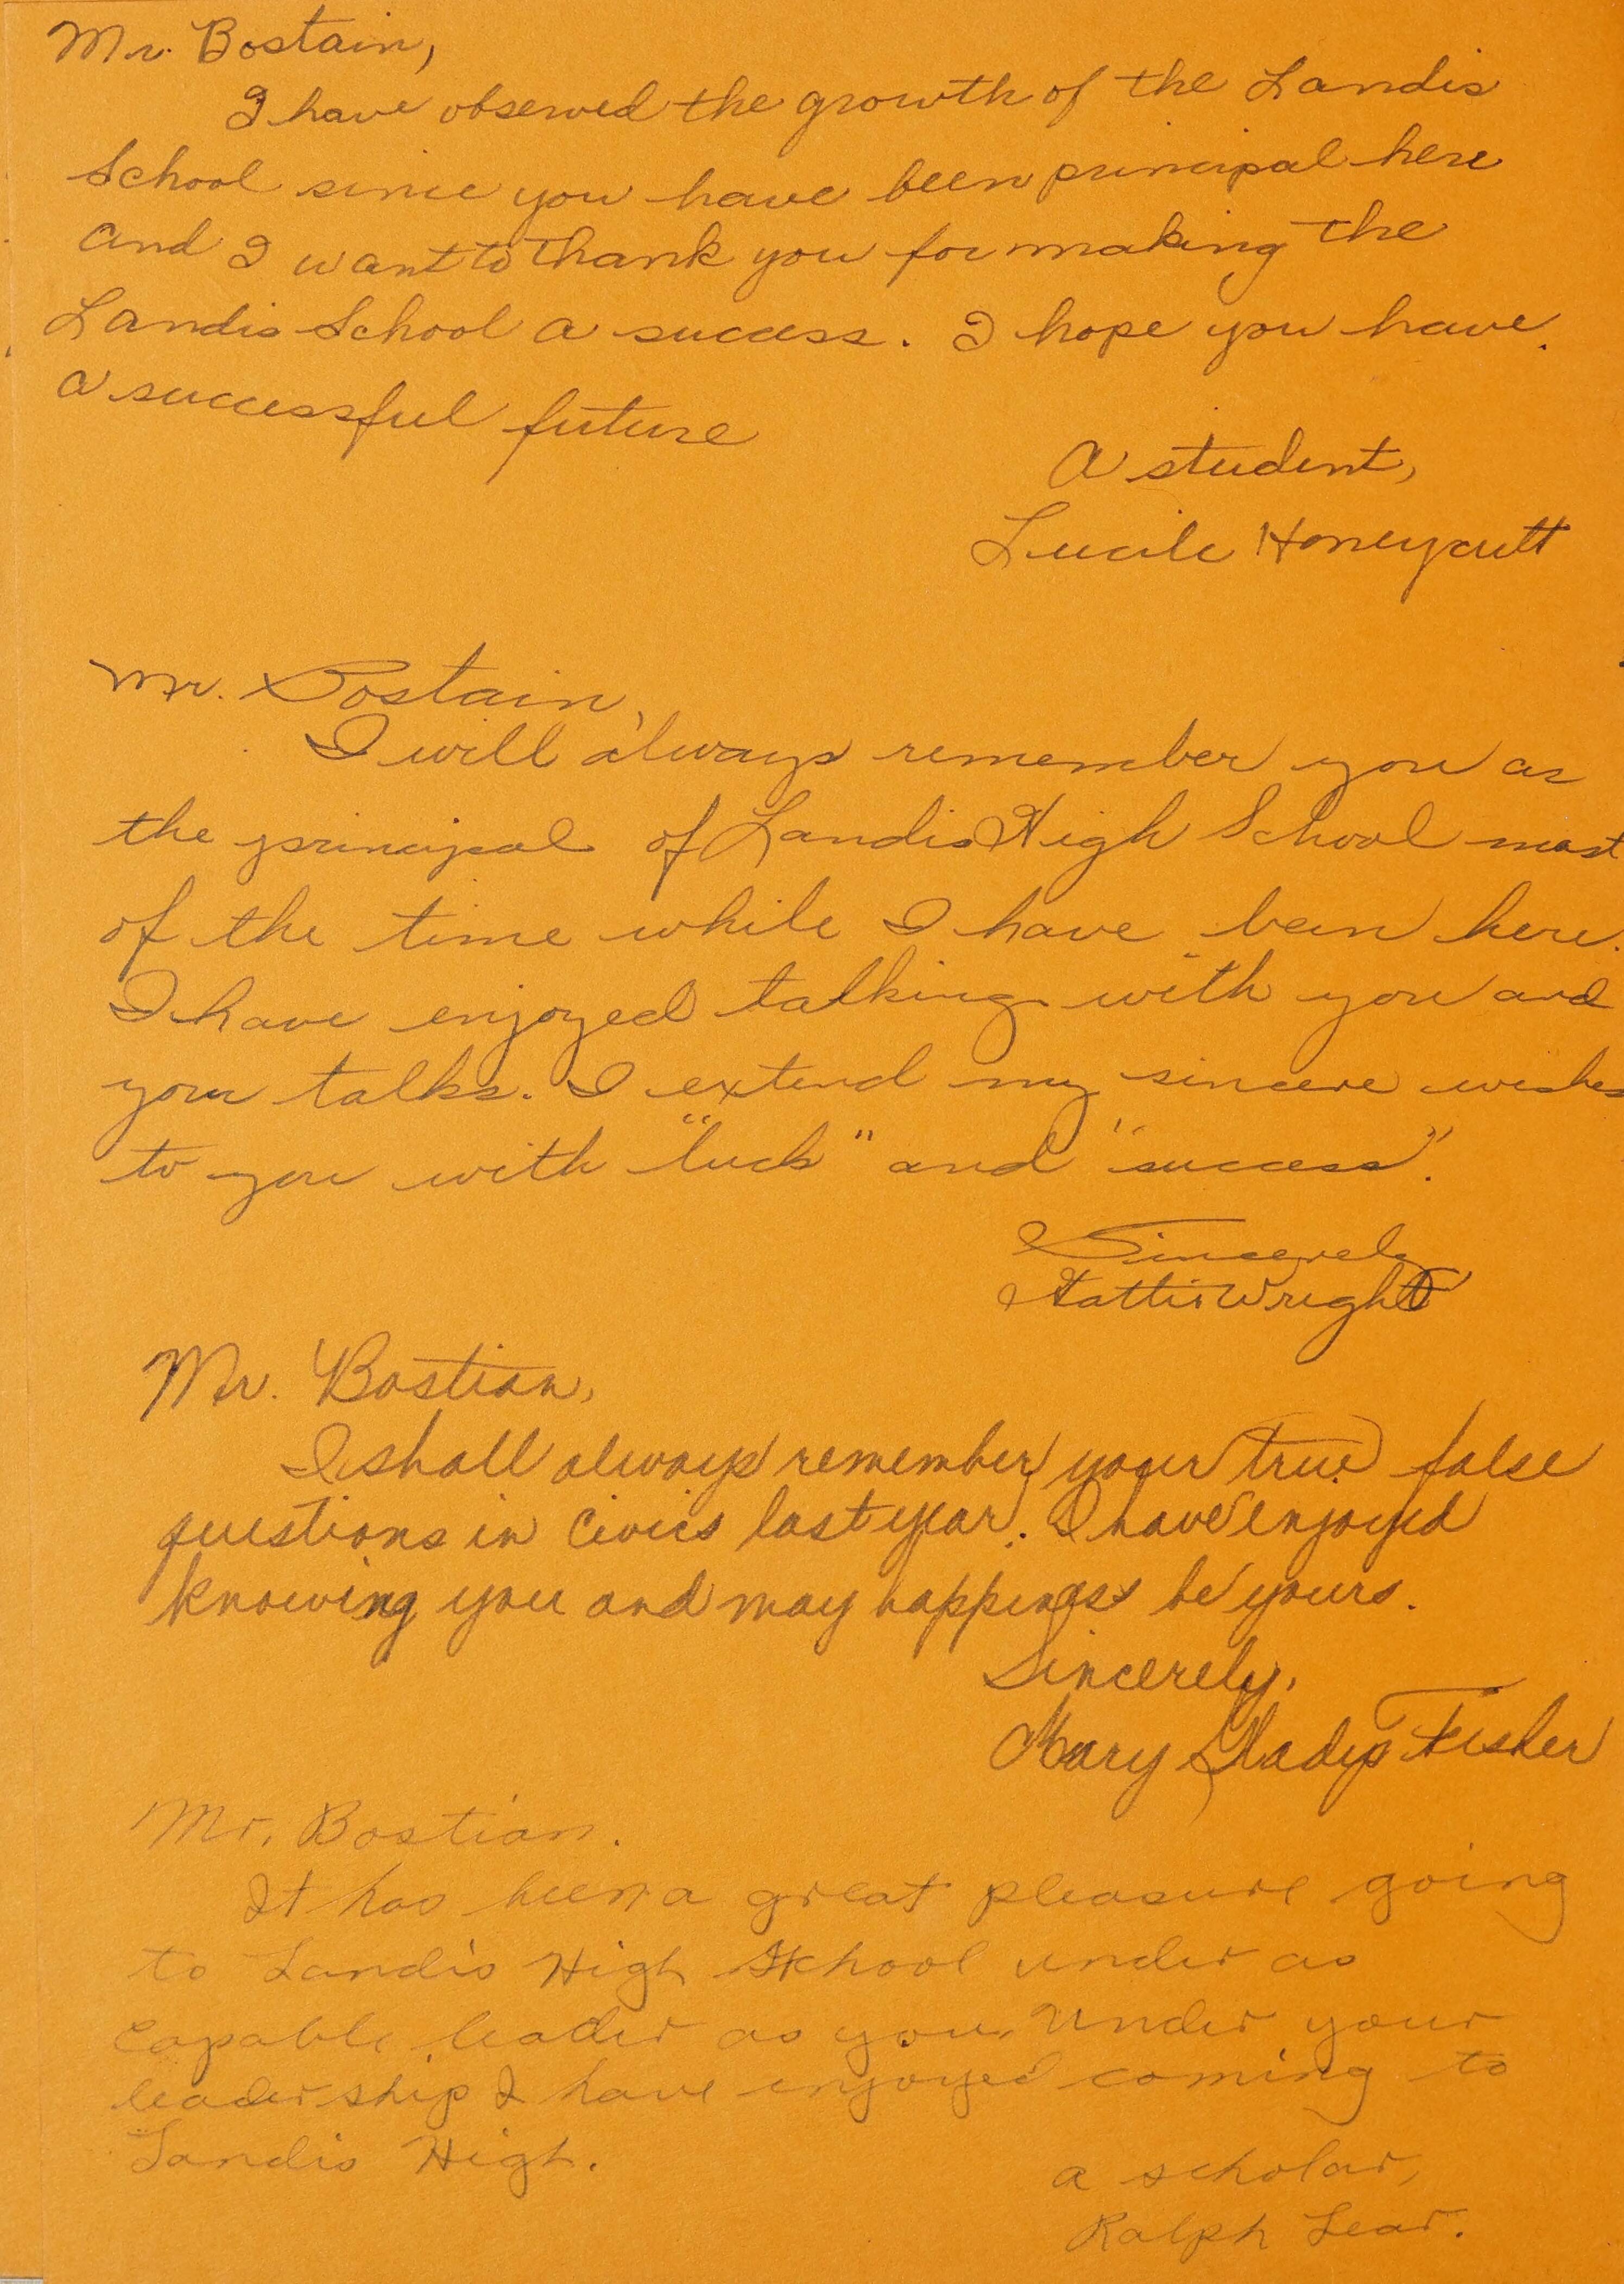 Mr. Bostain,
I have observed the growth of the Landis
School since you have been principal here
and I want to thank you for making the
Landis School a success. I hope you have
a successful future
A student,
Lucile Honeycutt
Mr. Bostain,
I will always remember you as
the principal of Landis High School most
of the time while I have been here.
I have enjoyed talking with you and
your talks. I extend my sincere wishes
to you with "luck" and "success".
Sincerely
Hattie Wright
Mr. Bostian,
I shall always remember your true false
questions in Civics last year. I have enjoyed
knowing you and may happiness be yours.
Sincerely,
Mary Gladys Fisher
Mr. Bostian.
It has been a great pleasure going
to Landis High School under as
capable leader as you. Under your
leadership I have enjoyed coming to
Landis High.
a scholar,
Ralph Lear.